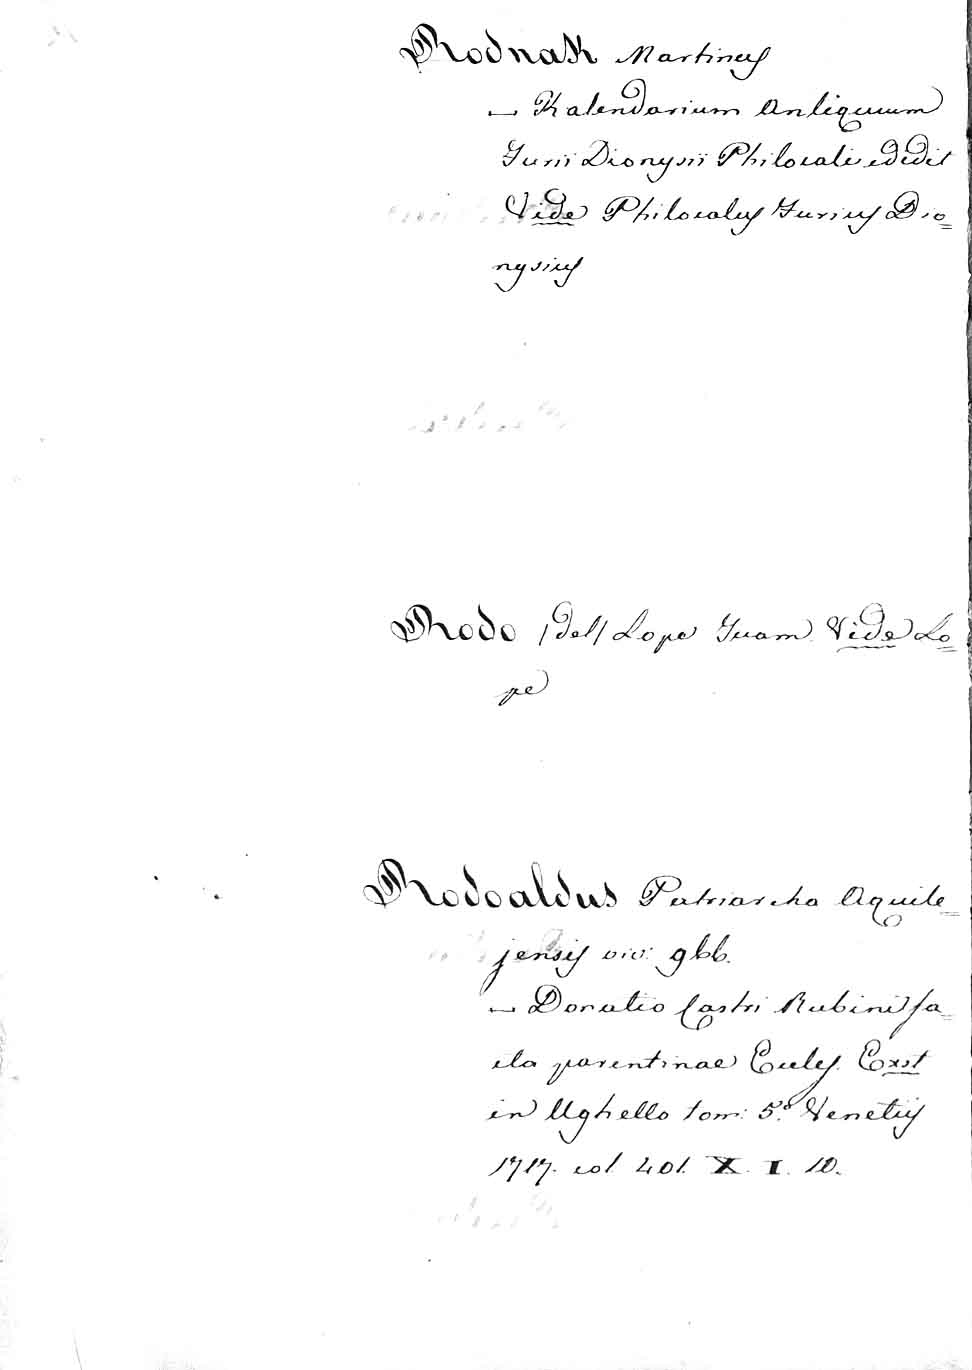 Rodnak Martinus
— Kalendarium Antiquum
Furii Dionysii Philocali edidit
Vide Philocalus Furius Dio=
nysius
Rodo /del/ Lope Juam. Vide Lo=
pe
Rodoaldus Patriarcha Aquile=
jensis viv: 966.
— Donatio Castri Rubini fa=
cta parentinae Eccles. Exst
in Ughello tom: 5.º Venetiis
1717. col 401. X. I. 10.